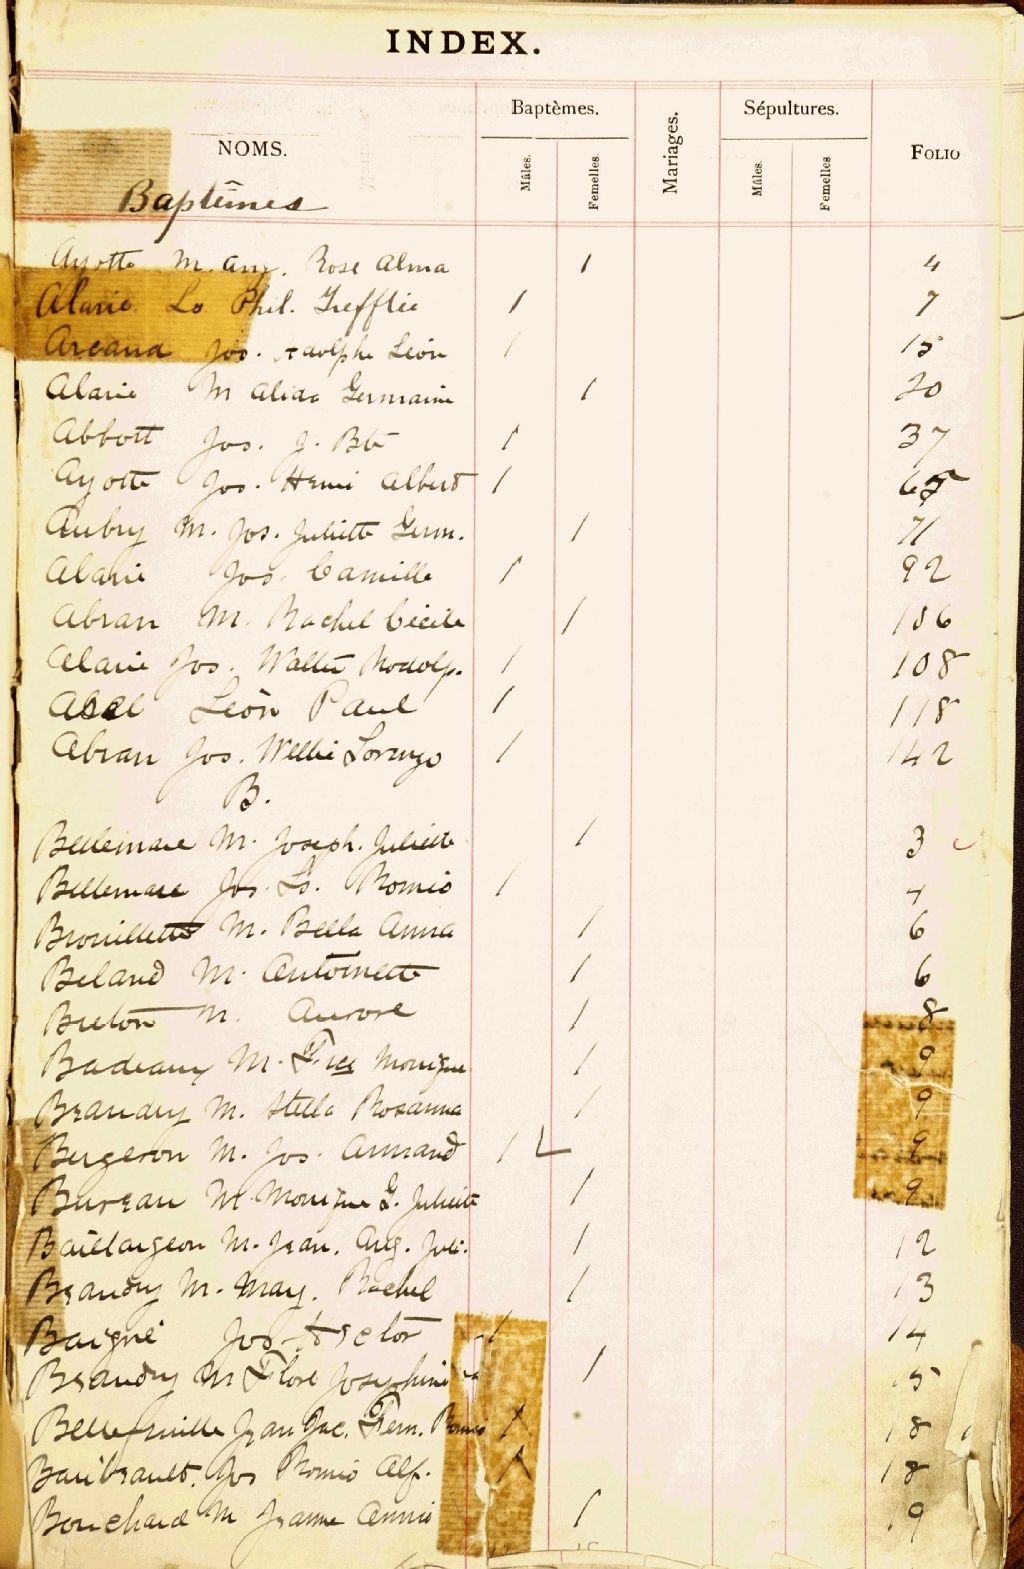 INDEX.
NOMS. Baptèmes. Mâles. Femelles Mariages. Sépultures. Mâles. Femelles FOLIO
Baptêmes
Ayotte M. Ang. Rose Alma 1 4
Alarie Ls Phil. Trefflée 1 7
Arcand Jos. Adolphe Léon 1 15
Alarie M Alida Germaine 1 20
Abbott Jos. J. Bte 1 37
Ayotte Jos. Henri Albert 1 65
Aubry M. Jos. Juliette Germ. 1 71
Alarie Jos. Camille 1 92
Abran M. Rachel Cécile 1 106
Alarie Jos. Walter Rodolp. 1 108
Abel Léon Paul 1 118
Abran Jos. Wellie Lorenzo 1 142
B.
Bellemare M. Joseph. Juliette 1 3
Bellemare Jos. Ls. Roméo 1 4
Brouillette M. Bella Anna 1 6
Beland M. Antoinette 1 6
Breton M. Aurore 1 8
Badeaux M. Fˢᶜᵉ Monique 1 9
Beaudry M. Stella Rosanna 1 9
Bergeron M. Jos. Armand 1 9
Bureau M. Monique G. Juliette 1 9
Baillargeon M. Jean. Ang. Juli. 1 12
Beaudry M. May. Rachel 1 13
Jos. Hector 1 14
Beaudry M Flore Josephine 1 15
Bellefeuille Jean Jac. Fern. Romeo 1 18
Baribeault. Jos Roméo Alf. 1 18
Bouchard M Jeanne Annie 1 19